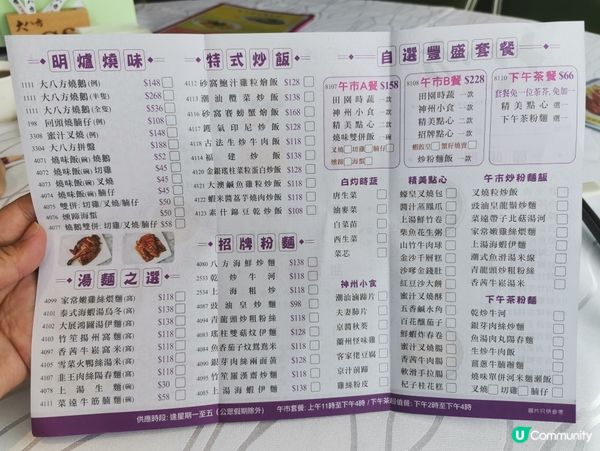 明爐燒味
1111 大八方燒鵝(例) $148
1111 大八方燒鵝(半隻) $268
1111 大八方燒鵝(全隻) $536
198 回頭燒腩仔(例) $108
3308 蜜汁叉燒(例) $108
3304 大八方拼盤 $188
4071 燒味飯(碗)燒鵝 $52
4072 燒味飯(碗)切雞 $45
4073 燒味飯(碗)叉燒 $45
4074 燒味飯(碗)腩仔 $45
4075 雙拼:切雞/叉燒/腩仔 $58
4076 燻蹄海蜇 $50
4077 燒鵝雙拼:切雞/叉燒/腩仔 $58
湯麵之選
4099 家常嫩雞絲煨麵(窩) $118
4101 泰式海蝦湯烏冬(窩) $138
4102 大展鴻圖湯伊麵(窩) $138
4103 竹笙掤窩麵(窩) $118
4097 香茜牛崧窩米(窩) $118
4105 雪菜火鴨絲湯米(窩) $118
4107 韭王肉絲湯春麵(窩) $118
4078 上湯生麵(碗) $30
4111 菜遠牛筋腩麵(窩) $118
特式炒飯
4112 砂窩鮑汁雞粒燴飯 $128
4113 潮汕欖菜炒飯 $128
4116 砂窩賽螃蟹燴飯 $128
4117 濩氣印尼炒飯 $128
4118 古法生炒牛肉飯 $128
4114 福建炒飯 $138
4120 金銀瑤柱菜粒蛋白炒飯 $128
4121 大澳鹹魚雞粒炒飯 $118
4122 蝦米醬荔芋燒肉炒飯 $118
4123 素什錦豆乾炒飯 $108
招牌粉麵
4080 八方海鮮炒麵 $138
2531 乾炒牛河 $118
2534 上海粗炒 $118
4087 豉油皇炒麵 $98
4094 青龍頭炒粗粉絲 $118
4083 瑤柱雙菇炆伊麵 $128
4084 魚香茄子炆鴛鴦米 $118
4090 銀芽肉絲兩面黃 $128
4092 竹笙羅漢齋炒麵 $118
4085 上湯海蝦伊麵 $138
自選豐盛套餐
8107 午市A餐 $158
田園時蔬 一款
神州小食 一款
精美點心 一款
燒味雙拼飯 一碗
叉燒 切雞 腩仔
燻蹄 海蜇
8108 午市B餐 $228
田園時蔬 一款
神州小食 一款
精美點心 一款
招牌點心 一款
蝦餃皇 蟹籽燒賣
炒粉麵飯 一款
8110 下午茶餐 $66
套餐免一位茶芥,免加一
精美點心 一款
下午茶粉麵 一款
白灼時蔬
唐生菜
油麥菜
白菜苗
西生菜
菜芯
神州小食
潮汕滷蹄片
夫妻肺片
京醬秋葵
蘭州怪味雞
客家佬豆腐
京汁前蹄
雞絲粉皮
精美點心
蠔皇叉燒包
醬汁蒸鳳爪
上湯鮮竹卷
柴魚花生粥
山竹牛肉球
金沙千層糕
沙嗲金錢肚
紅豆沙大餅
蜜汁叉燒酥
五香鹹水角
百花釀茄子
鮮蝦炸春卷
蜜汁叉燒腸
香茜牛肉腸
軟滑手拉腸
杞子桂花糕
午市炒粉麵飯
叉燒粒炒飯
豉油皇龍腸炒麵
菜遠帶子北菇湯河
家常嫩雞煨麵
上湯海蝦伊麵
潮式魚滑湯米線
青龍頭炒粗粉絲
香茜牛崧湯米
下午茶粉麵
乾炒牛河
銀芽肉絲炒麵
魚湯肉丸湯春麵
生炒牛肉飯
蔬蔥牛脷瀨麵
燒味單併河米麵瀨飯
叉燒 切雞 腩仔
供應時段: 逢星期一至五 (公眾假期除外) 午市套餐: 上午11時至下午4時 / 下午茶超值餐: 下午2時至下午4時
圖片只供參考
U Community